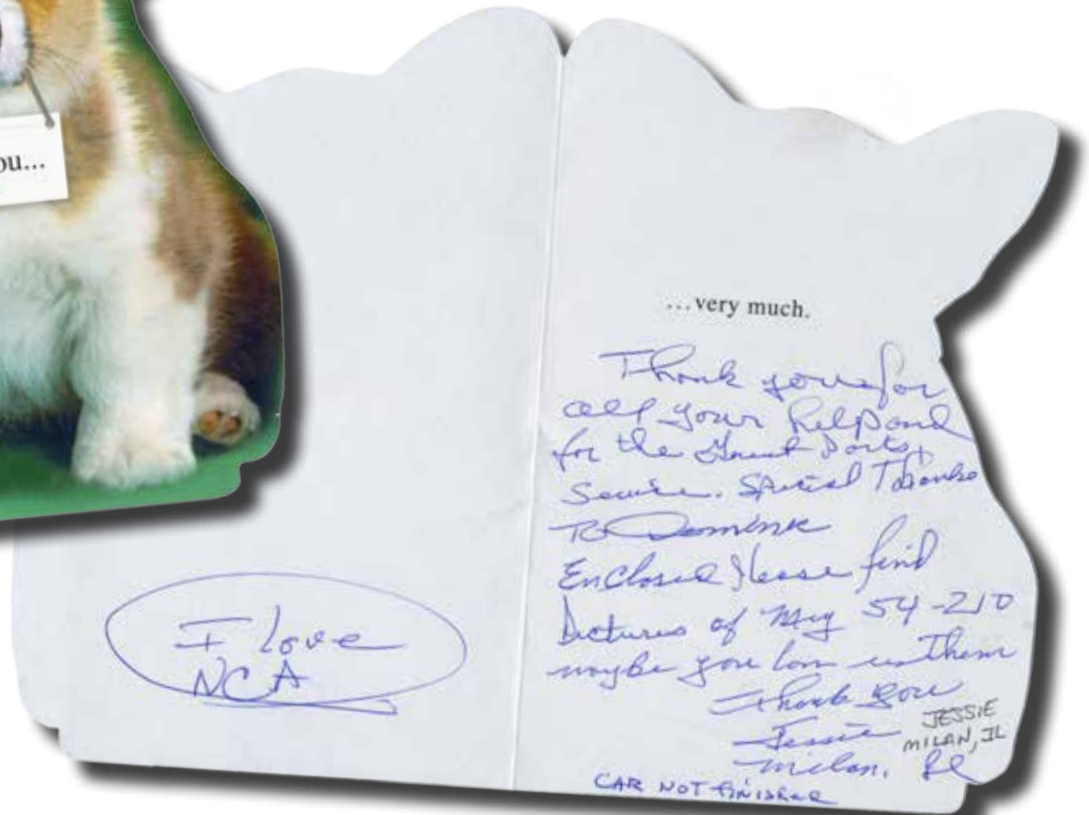 ou...
...very much.
Thank you for
all your help and
for the Great Parts,
Service. Special Thanks
To Dominic
Enclosed Please find
Pictures of My 54-210
maybe you can use Them
Thank You
Jessie
JESSIE
MILAN, IL
Milan, IL
CAR NOT FINISHED
I love
NCA